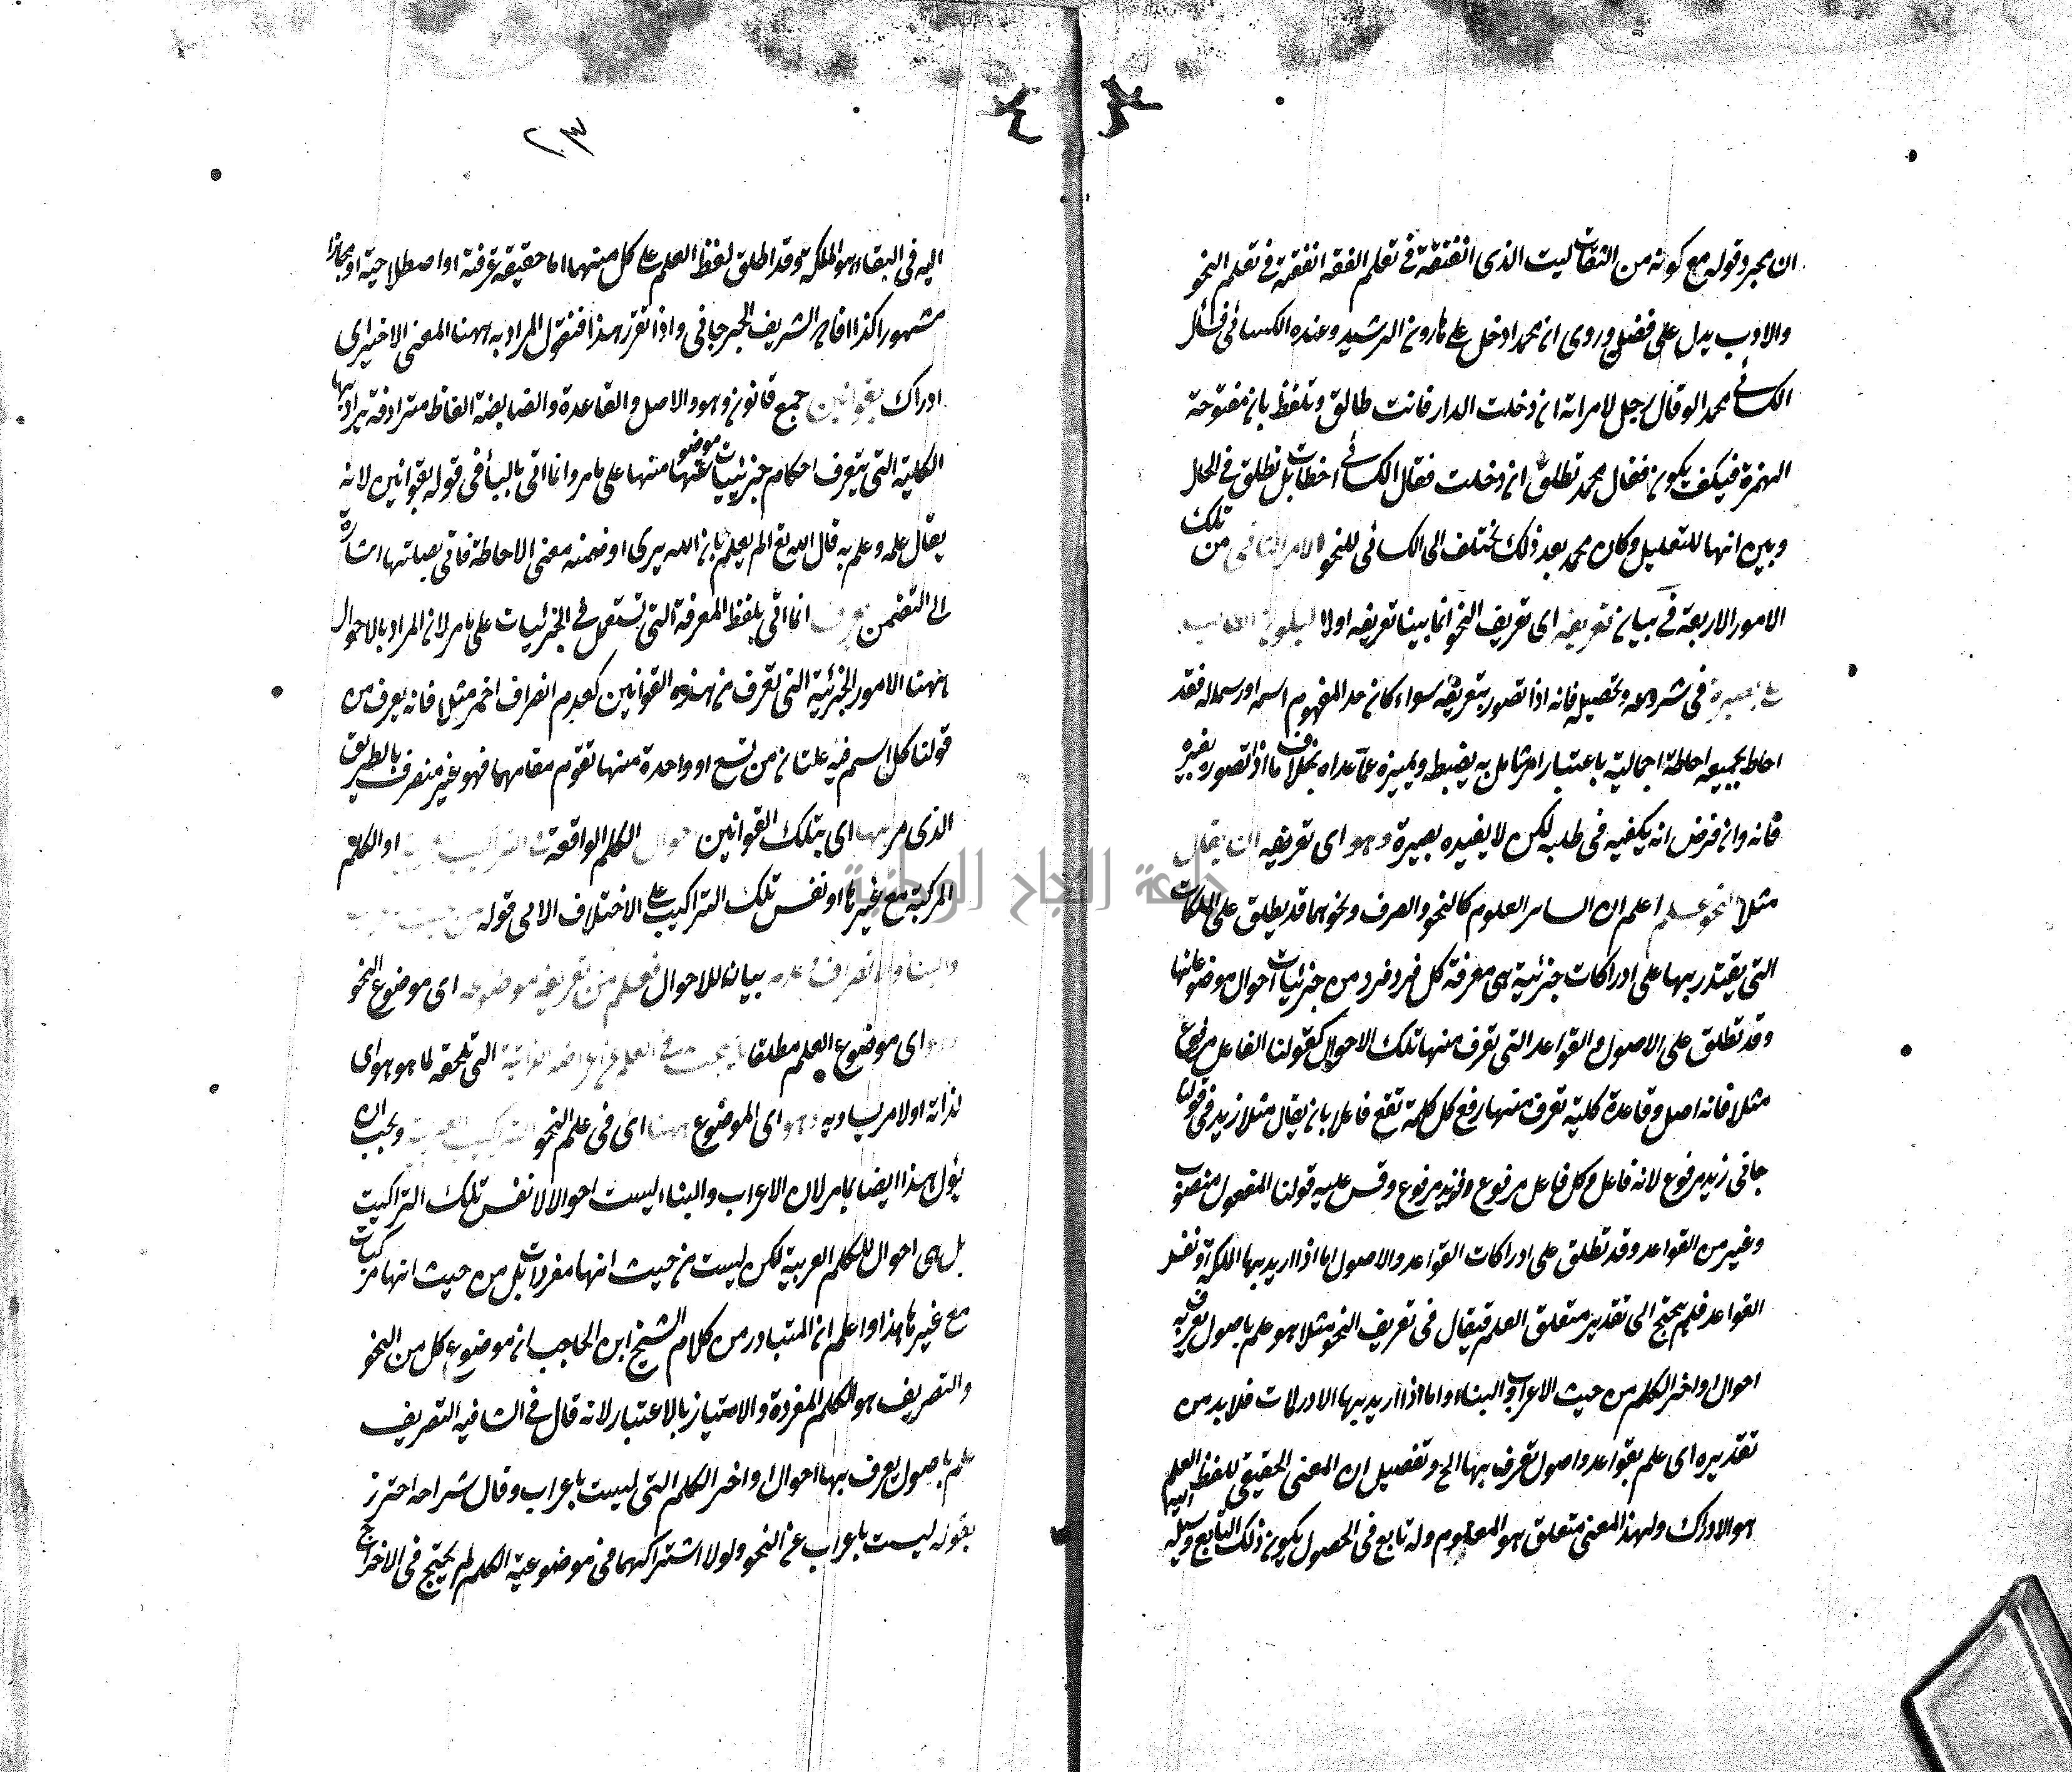 ان مجرد قوله مع كونه من الثقات ليت الذى انفقته فى تعلم الفقه انفقته فى تعلم النحو
والادب يدل على فضله وروى ان محمدا دخل على هارون الرشيد وعنده الكسائى فسأل
الكسائى محمدا لو قال رجل لامراته ان دخلت الدار فانت طالق وتلفظ بان مفتوحة
الهمزة فكيف يكون فقال محمد تطلق ان دخلت فقال الكسائى اخطات بل تطلق فى الحال
وبين انها للتعليل وكان محمد بعد ذلك يختلف الى الكسائى للنحو الامر الثانى من تلك
الامور الاربعة فى بيان تعريفه اى تعريف النحو انما بينا تعريفه اولا ليكون الطالب
على بصيرة فى شروعه وتحصيله فانه اذا تصور بتعريفه سواء كان حدا لمفهوم اسمه او رسما له فقد
احاط بجميعه احاطة اجمالية باعتبار امر شامل به يضبطه ويميزه عما عداه بخلاف ما اذا تصور بغيره
فانه وان فرض انه يكفيه فى طلبه لكن لا يفيده بصيرة وهو اى تعريفه ان يقال
مثلا النحو علم اعلم ان اسامى العلوم كالنحو والصرف ونحوهما قد يطلق على الملكات
التى يقتدر بها على ادراكات جزئية هى معرفة كل فرد فرد من جزئيات احوال موضوعاتها
وقد تطلق على الاصول والقواعد التى تعرف منها تلك الاحوال كقولنا الفاعل مرفوع
مثلا فانه اصل وقاعدة كلية تعرف منها رفع كل كلمة تقع فاعلا بان يقال مثلا زيد فى قولنا
جانى زيد مرفوع لانه فاعل وكل فاعل مرفوع فزيد مرفوع وقس عليه قولنا المفعول منصوب
وغير من القواعد وقد تطلق على ادراكات القواعد والاصول اما اذا اريد بها الملكة او نفس
القواعد فلم يحتج الى تقدير متعلق العلم فيقال فى تعريف النحو مثلا هو علم باصول يعرف به
احوال اواخر الكلم من حيث الاعراب والبناء واما اذا اريد بها الادراكات فلابد من
تقديره اى علم بقواعد واصول تعرف بها الخ وتفصيل ان المعنى الحقيقى للفظ العلم
هو الادراك ولهذا المعنى متعلق هو المعلوم وله تابع فى الحصول يكون ذلك التابع وسيلة اليه
٢٣
اليه فى البقاء وهو الملكة وقد اطلق لفظ العلم على كل منهما اما حقيقة عرفية او اصطلاحية او مجازا
مشهورا كذا افاده الشريف الجرجانى واذا تقرر هذا فنقول المراد به ههنا المعنى الاخير اى
ادراك بقوانين جمع قانون وهو والاصل والقاعدة والضابطة الفاظ مترادفة يراد بها
الكلية التى يتعرف احكام جزئيات موضوعها منها على ما مر وانما اتى بالباء فى قوله بقوانين لانه
يقال علمه وعلم به قال الله تع الم يعلم بان الله يرى او ضمنه معنى الاحاطة فاتى بصلتها اشارة
الى التضمن يعرف انما اتى بلفظ المعرفة التى تستعمل فى الجزئيات على ما مر لان المراد بالاحوال
ههنا الامور الجزئية التى تعرف من هذه القوانين كعدم انصراف احمر مثلا فانه يعرف من
قولنا كل اسم فيه علتان من تسع او واحدة منها تقوم مقامهما فهو غير منصرف بالطريق
الذى مر بها اى بتلك القوانين احوال الكلم الواقعة فى التراكيب العربية او الكلم
المركبة مع غيرها او نفس تلك التراكيب على الاختلاف الاتى قوله من حيث الاعراب
والبناء والانصراف وعدمه بيان للاحوال فعلم من تعريفه موضوعه اى موضوع النحو
وهو اى موضوع العلم مطلقا ما يبحث فى العلم عن عوارضه الذاتية التى تلحقه لما هو هو اى
لذاته او لامر يساويه وهو اى الموضوع ههنا اى فى علم النحو التراكيب العربية ويجب ان
يؤل هذا ايضا بما مر لان الاعراب والبناء ليست احوالا لانفس تلك التراكيب
بل هى احوال للكلم العربية لكن ليست من حيث انها مفردات بل من حيث انها مركبات
مع غيرها هذا واعلم ان المتبادر من كلام الشيخ ابن الحاجب ان موضوع كل من النحو
والتصريف هو الكلم المفردة والامتياز بالاعتبار لانه قال فى الشافيه التصريف
علم باصول يعرف بها احوال اواخر الكلم التى ليست باعراب وقال شراحه احترز
بقوله ليست باعراب عن النحو ولولا اشتراكهما فى موضوعية الكلم لم يحتج فى الاخراج
جامعة النجاح الوطنية